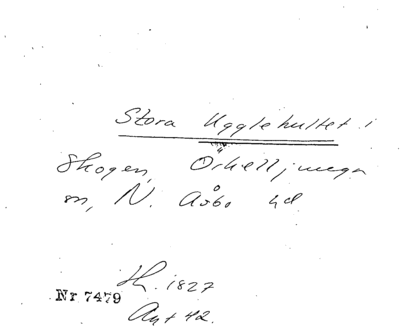 Stora Ugglehultet i
Skogen, Örkelljunga
sn, N. Åsbo hd
H. 1827
Nr 7479
Ant 42.